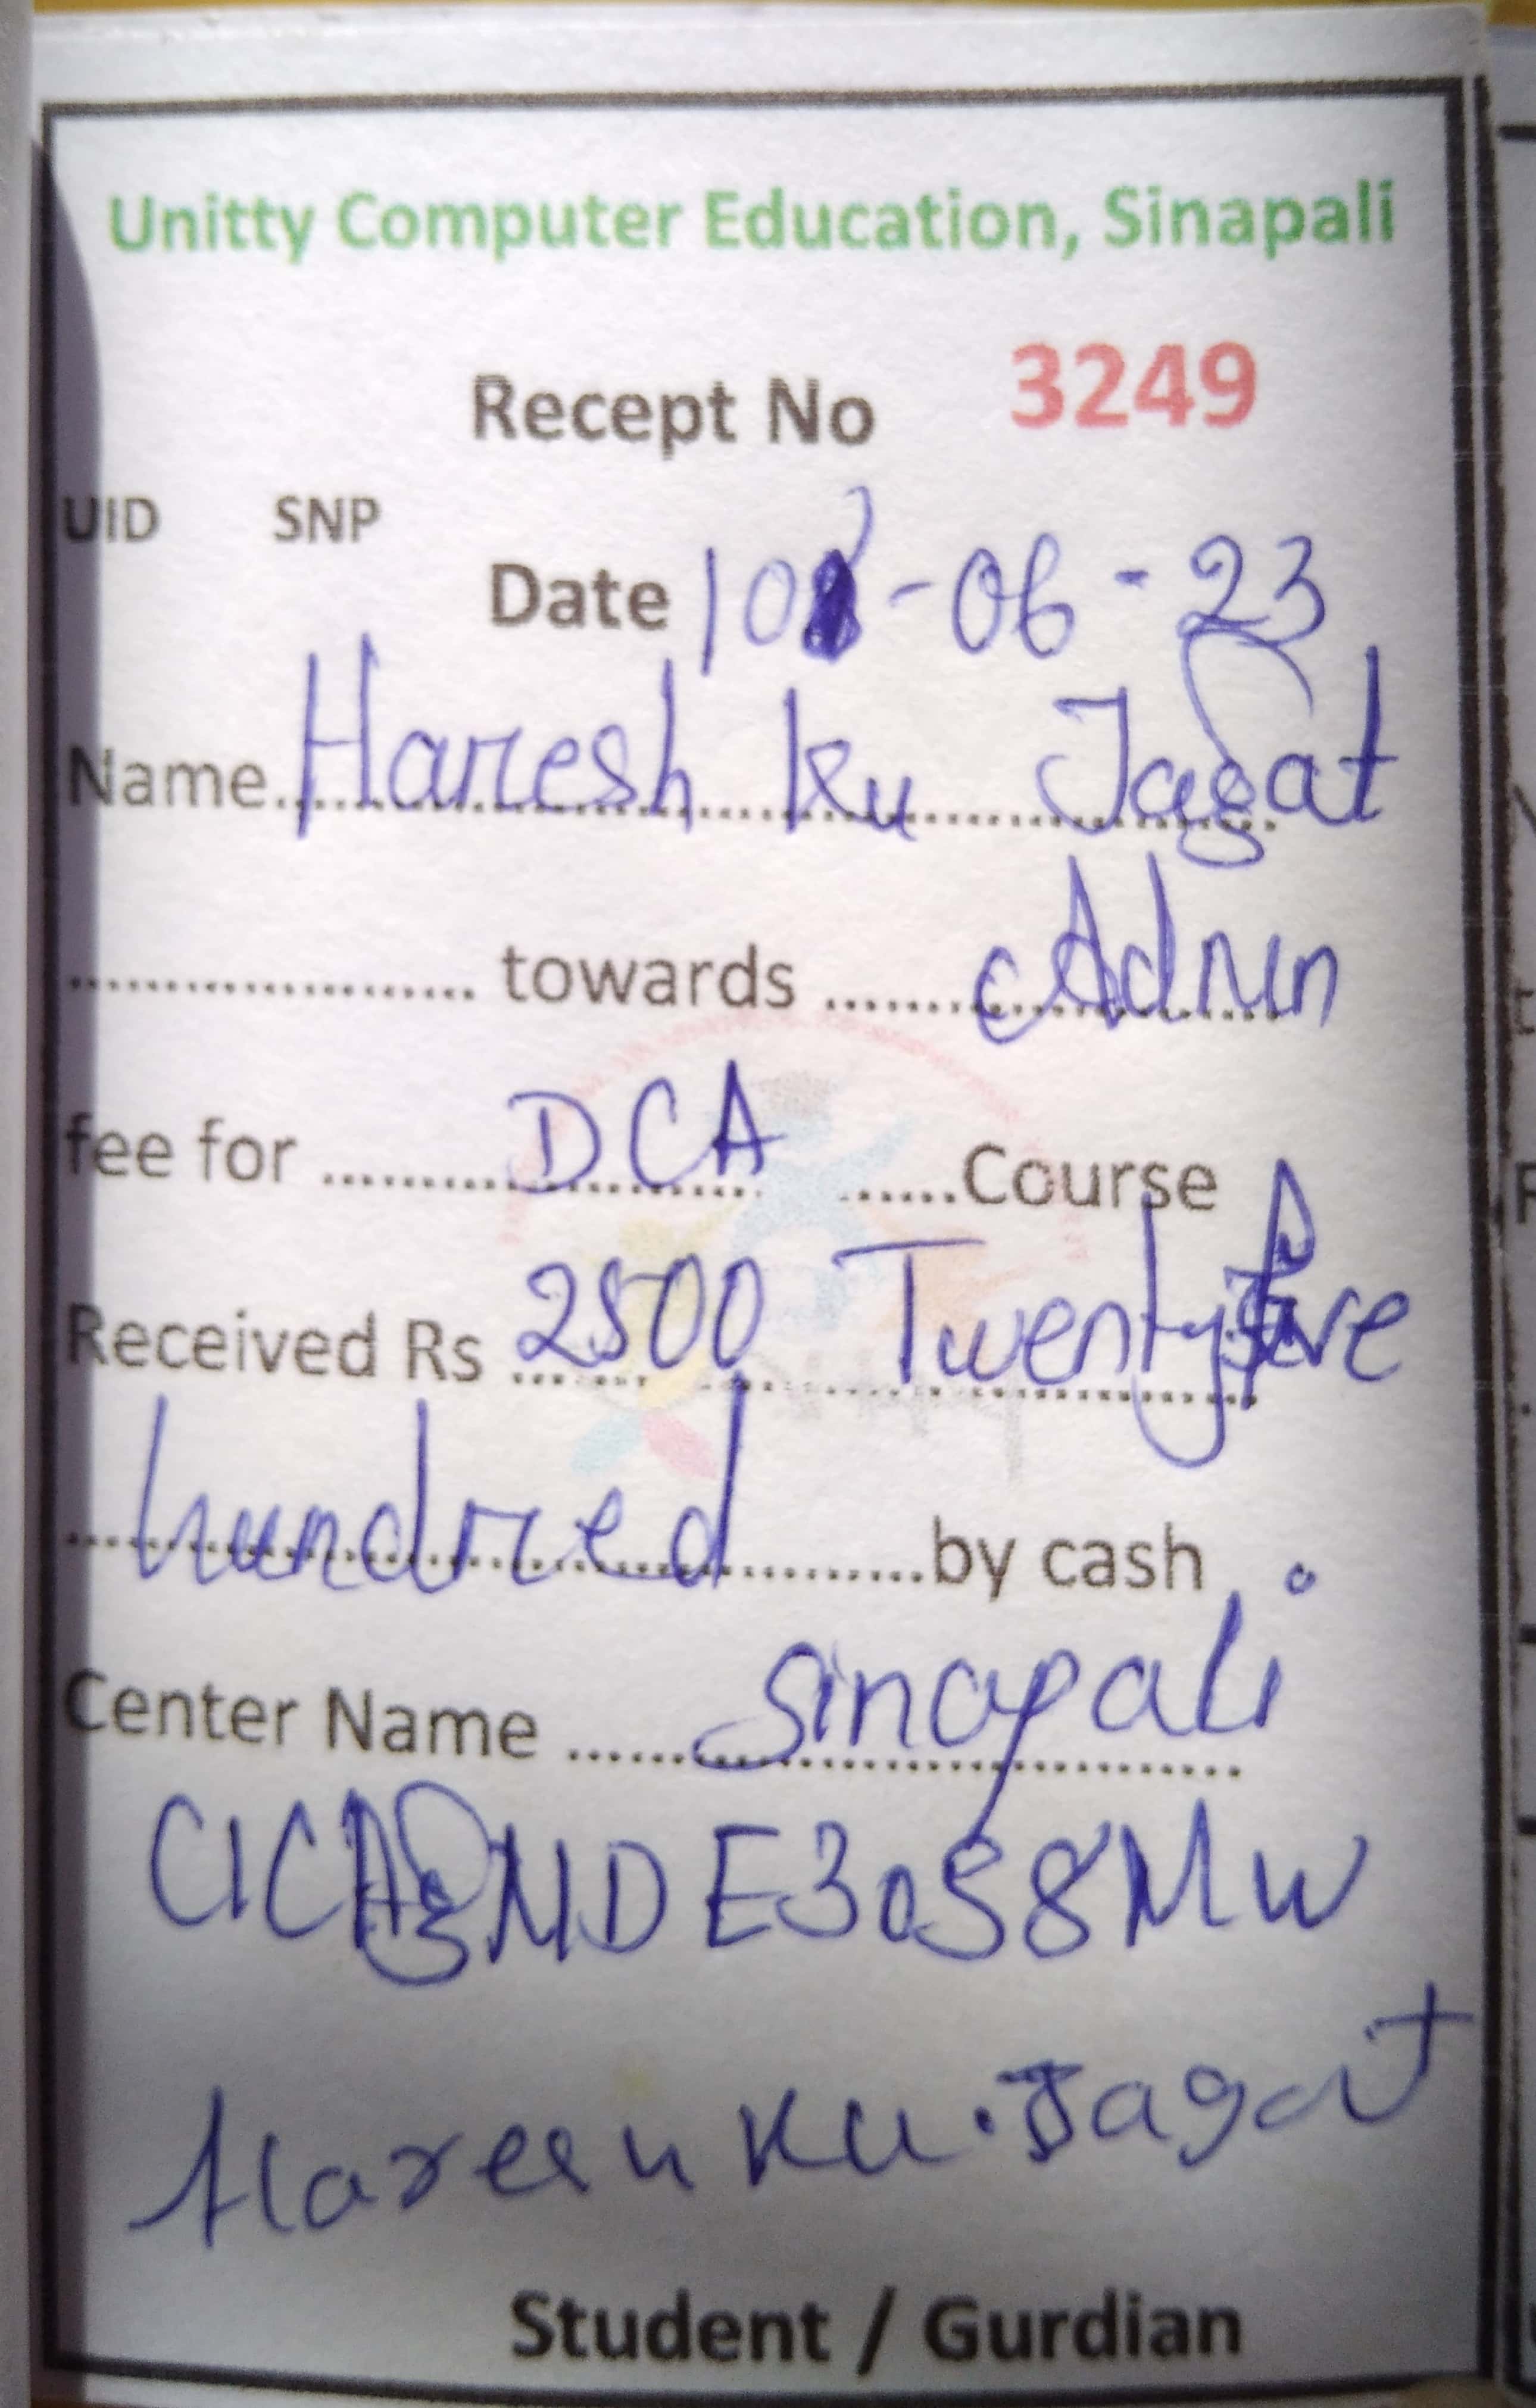 Unitty Computer Education, Sinapali
Recept No 3249
UID SNP
Date 10-06-23
Name Haresh Ku Jagat
towards Admn
fee for DCA Course
Received Rs 2500 Twentyfive
hundred by cash
Center Name Sinapali
Haresh Ku. Jagat
Student / Gurdian